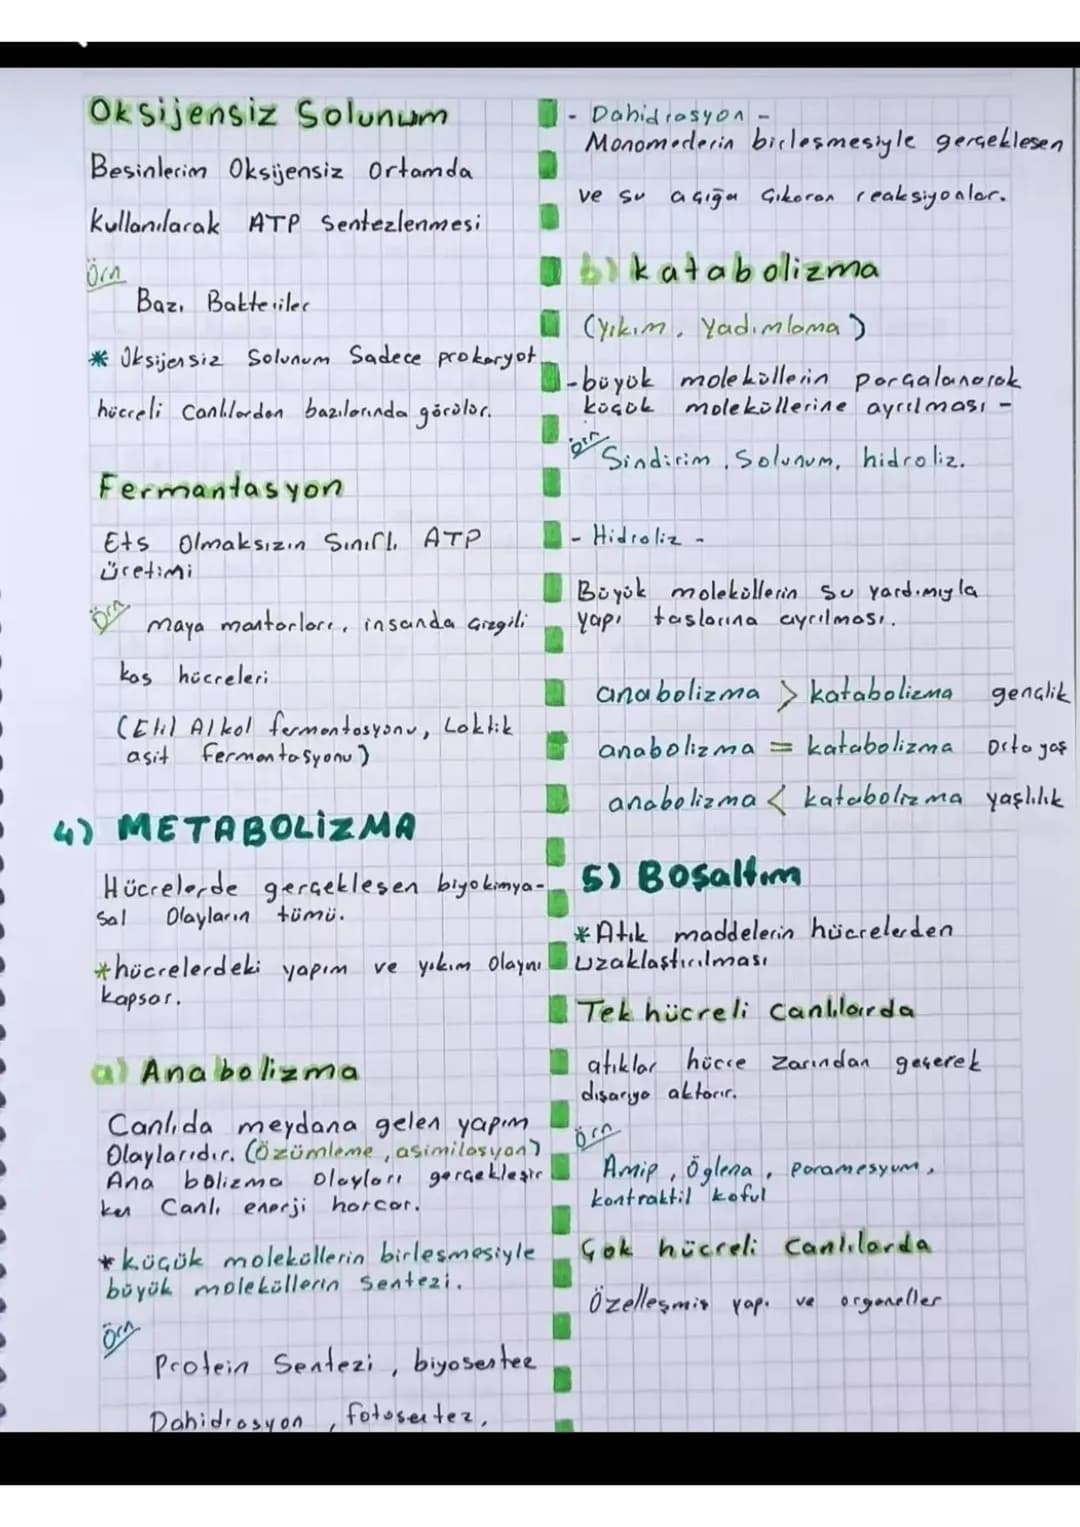 Oksijensiz Solunum
Besinlerim Oksijensiz Ortamda
Kullanılarak ATP Sentezlenmesi
Örn
Bazı Bakteriler
* Oksijensiz Solunum Sadece prokaryot
hücreli Canlılardan bazılarında görülür.
Fermantasyon
Ets Olmaksızın Sınırlı ATP
üretimi
Örn
maya mantarları, insanda Çizgili
kas hücreleri
(Etil Alkol fermantasyonu, Laktik
asit fermantasyonu)
4) METABOLİZMA
Hücrelerde gerçekleşen biyokimya-
sal Olayların tümü.
*hücrelerdeki yapım ve yıkım Olaynı
kapsar.
a) Anabolizma
Canlıda meydana gelen yapım
Olaylarıdır. (Özümleme, asimilasyon)
Ana bolizma Olayları gerçekleşir
ken Canlı enerji harcar.
*küçük moleküllerin birleşmesiyle
büyük moleküllerin Sentezi.
Örn
Protein Sentezi, biyosentez
Dahidrasyon, fotosentez,
- Dahidrasyon -
Monomerlerin birleşmesiyle gerçekleşen
ve su açığa Çıkaran reaksiyonlar.
b) katabolizma
(Yıkım, Yadımlama)
-büyük moleküllerin parçalanarak
küçük moleküllerine ayrılması -
örn
Sindirim, Solunum, hidroliz.
- Hidroliz -
Büyük moleküllerin su yardımıyla
yapı taşlarına ayrılması.
anabolizma > katabolizma gençlik
anabolizma = katabolizma Orta yaş
anabolizma < katabolizma yaşlılık
5) Boşaltım
*Atık maddelerin hücrelerden
uzaklaştırılması
Tek hücreli Canlılarda
atıklar hücre zarından geçerek
dışarıya aktarır.
örn
Amip, Öglena, paramesyum,
kontraktil koful
Çok hücreli Canlılarda
Özelleşmiş yapı ve organeller